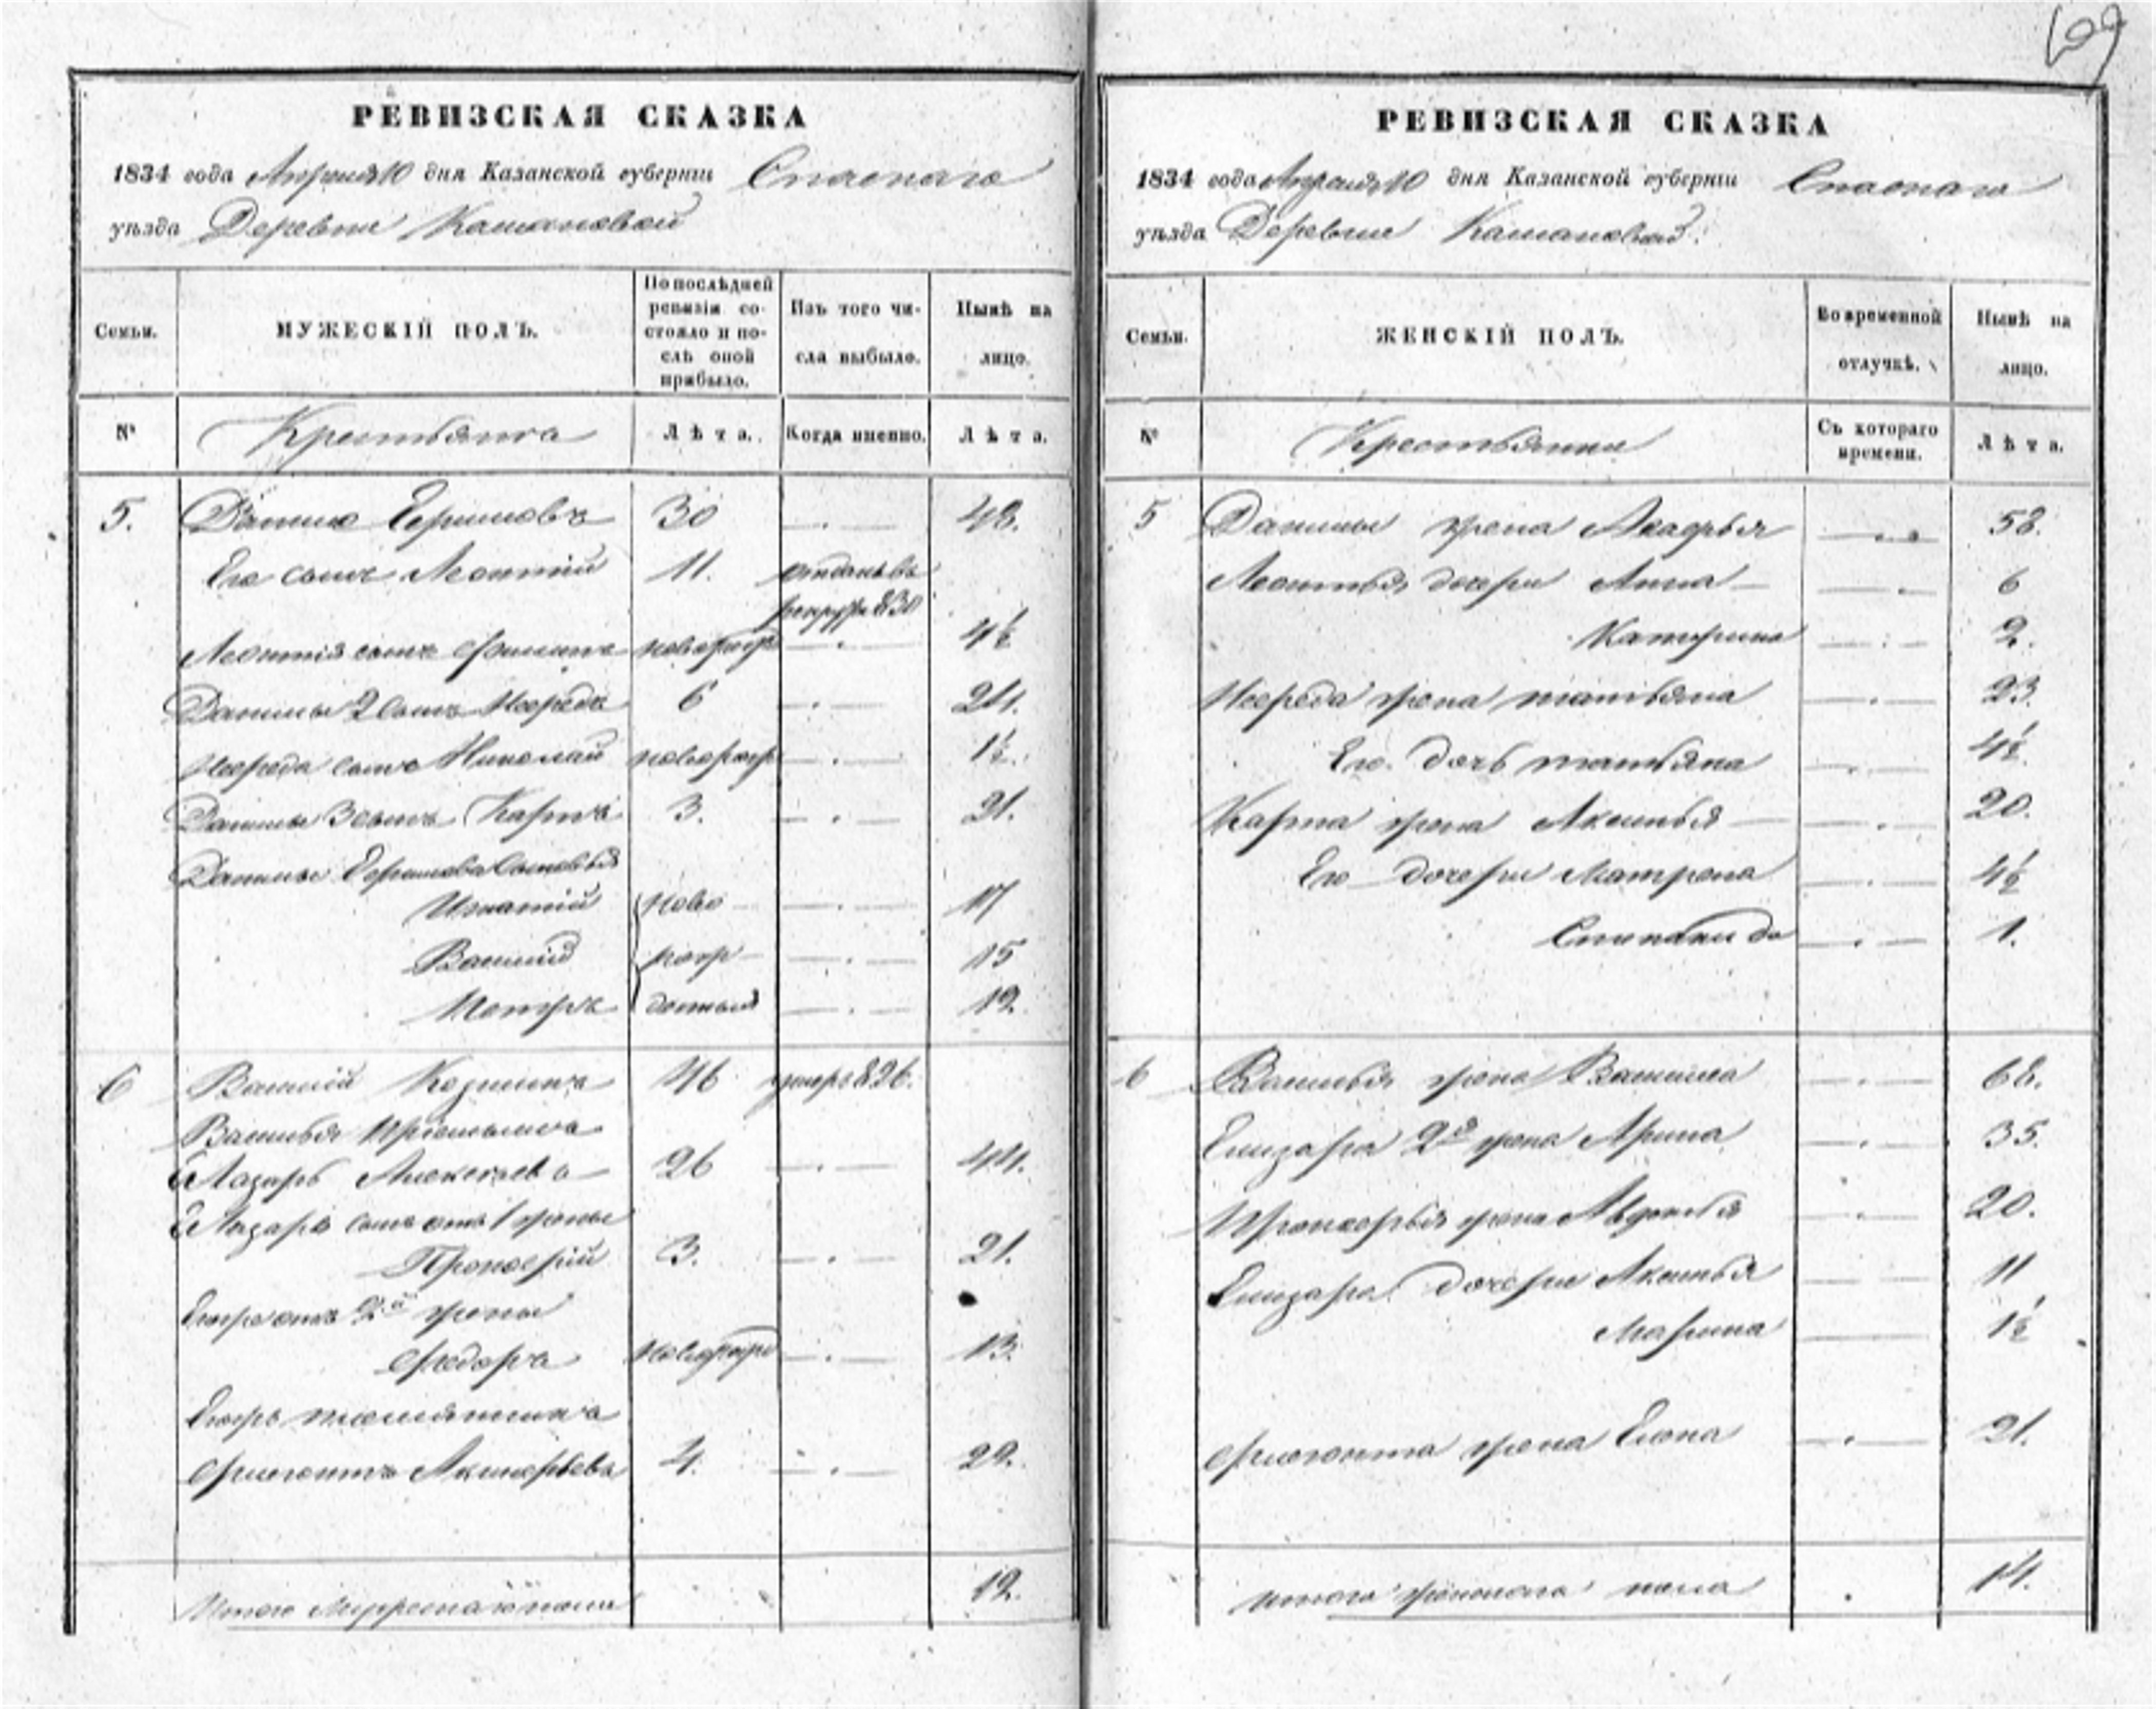 109
РЕВИЗСКАЯ СКАЗКА
1834 года Апреля 10 дня Казанской губернии Спаскаго
уѣзда Деревни Кашановой
Семьи.
МУЖЕСКІЙ ПОЛЪ.
По послѣдней ревизіи состояло и послѣ оной прибыло.
Изъ того числа выбыло.
Нынѣ на лицо.
№
Крестьяня
Лѣта.
Когда именно.
Лѣта.
5. Данило 30 48.
Его сынъ Леонтій 11. отданъ въ
рекруты 830
Леонтія сынъ Филипъ новорож 4½
Данилы 2 сынъ 6 24.
сынъ Николай новорож 1½.
Данилы 3 сынъ Карпъ 3. 21.
Данилы сыновья
Игнатій ново 17
Василій рож 15
Петръ денныя 12.
6 Василій Козминъ 46 умеръ 826.
Василья
Елазаръ Алексѣевъ 26 44.
Елазара сынъ отъ 1 жены
Прокофій 3. 21.
отъ 2й жены
Федоръ новорожд 13.
племянникъ
4. 22.
Итого Мужескаго пола 12.
РЕВИЗСКАЯ СКАЗКА
1834 года Апреля 10 дня Казанской губерніи Спаскаго
уѣзда Деревни Кашановой.
Семьи.
ЖЕНСКІЙ ПОЛЪ.
Во временной отлучкѣ.
Нынѣ на лицо.
№
Крестьянки
Съ котораго времени.
Лѣта.
5 Данилы жена 58.
Леонтья дочери Анна 6
Катерина 2.
жена татьяна 23.
Его дочь татьяна 4½.
Карпа жена Аксинья 20.
Его дочери Матрена 4½
1.
6 Василья жена Василиса 68.
Елизара 2я жена Арина 35.
Прокофья жена Авдотья 20.
Елизара дочери Аксинья 11
Марина 1½
жена Елена 21.
итого женскаго пола 14.